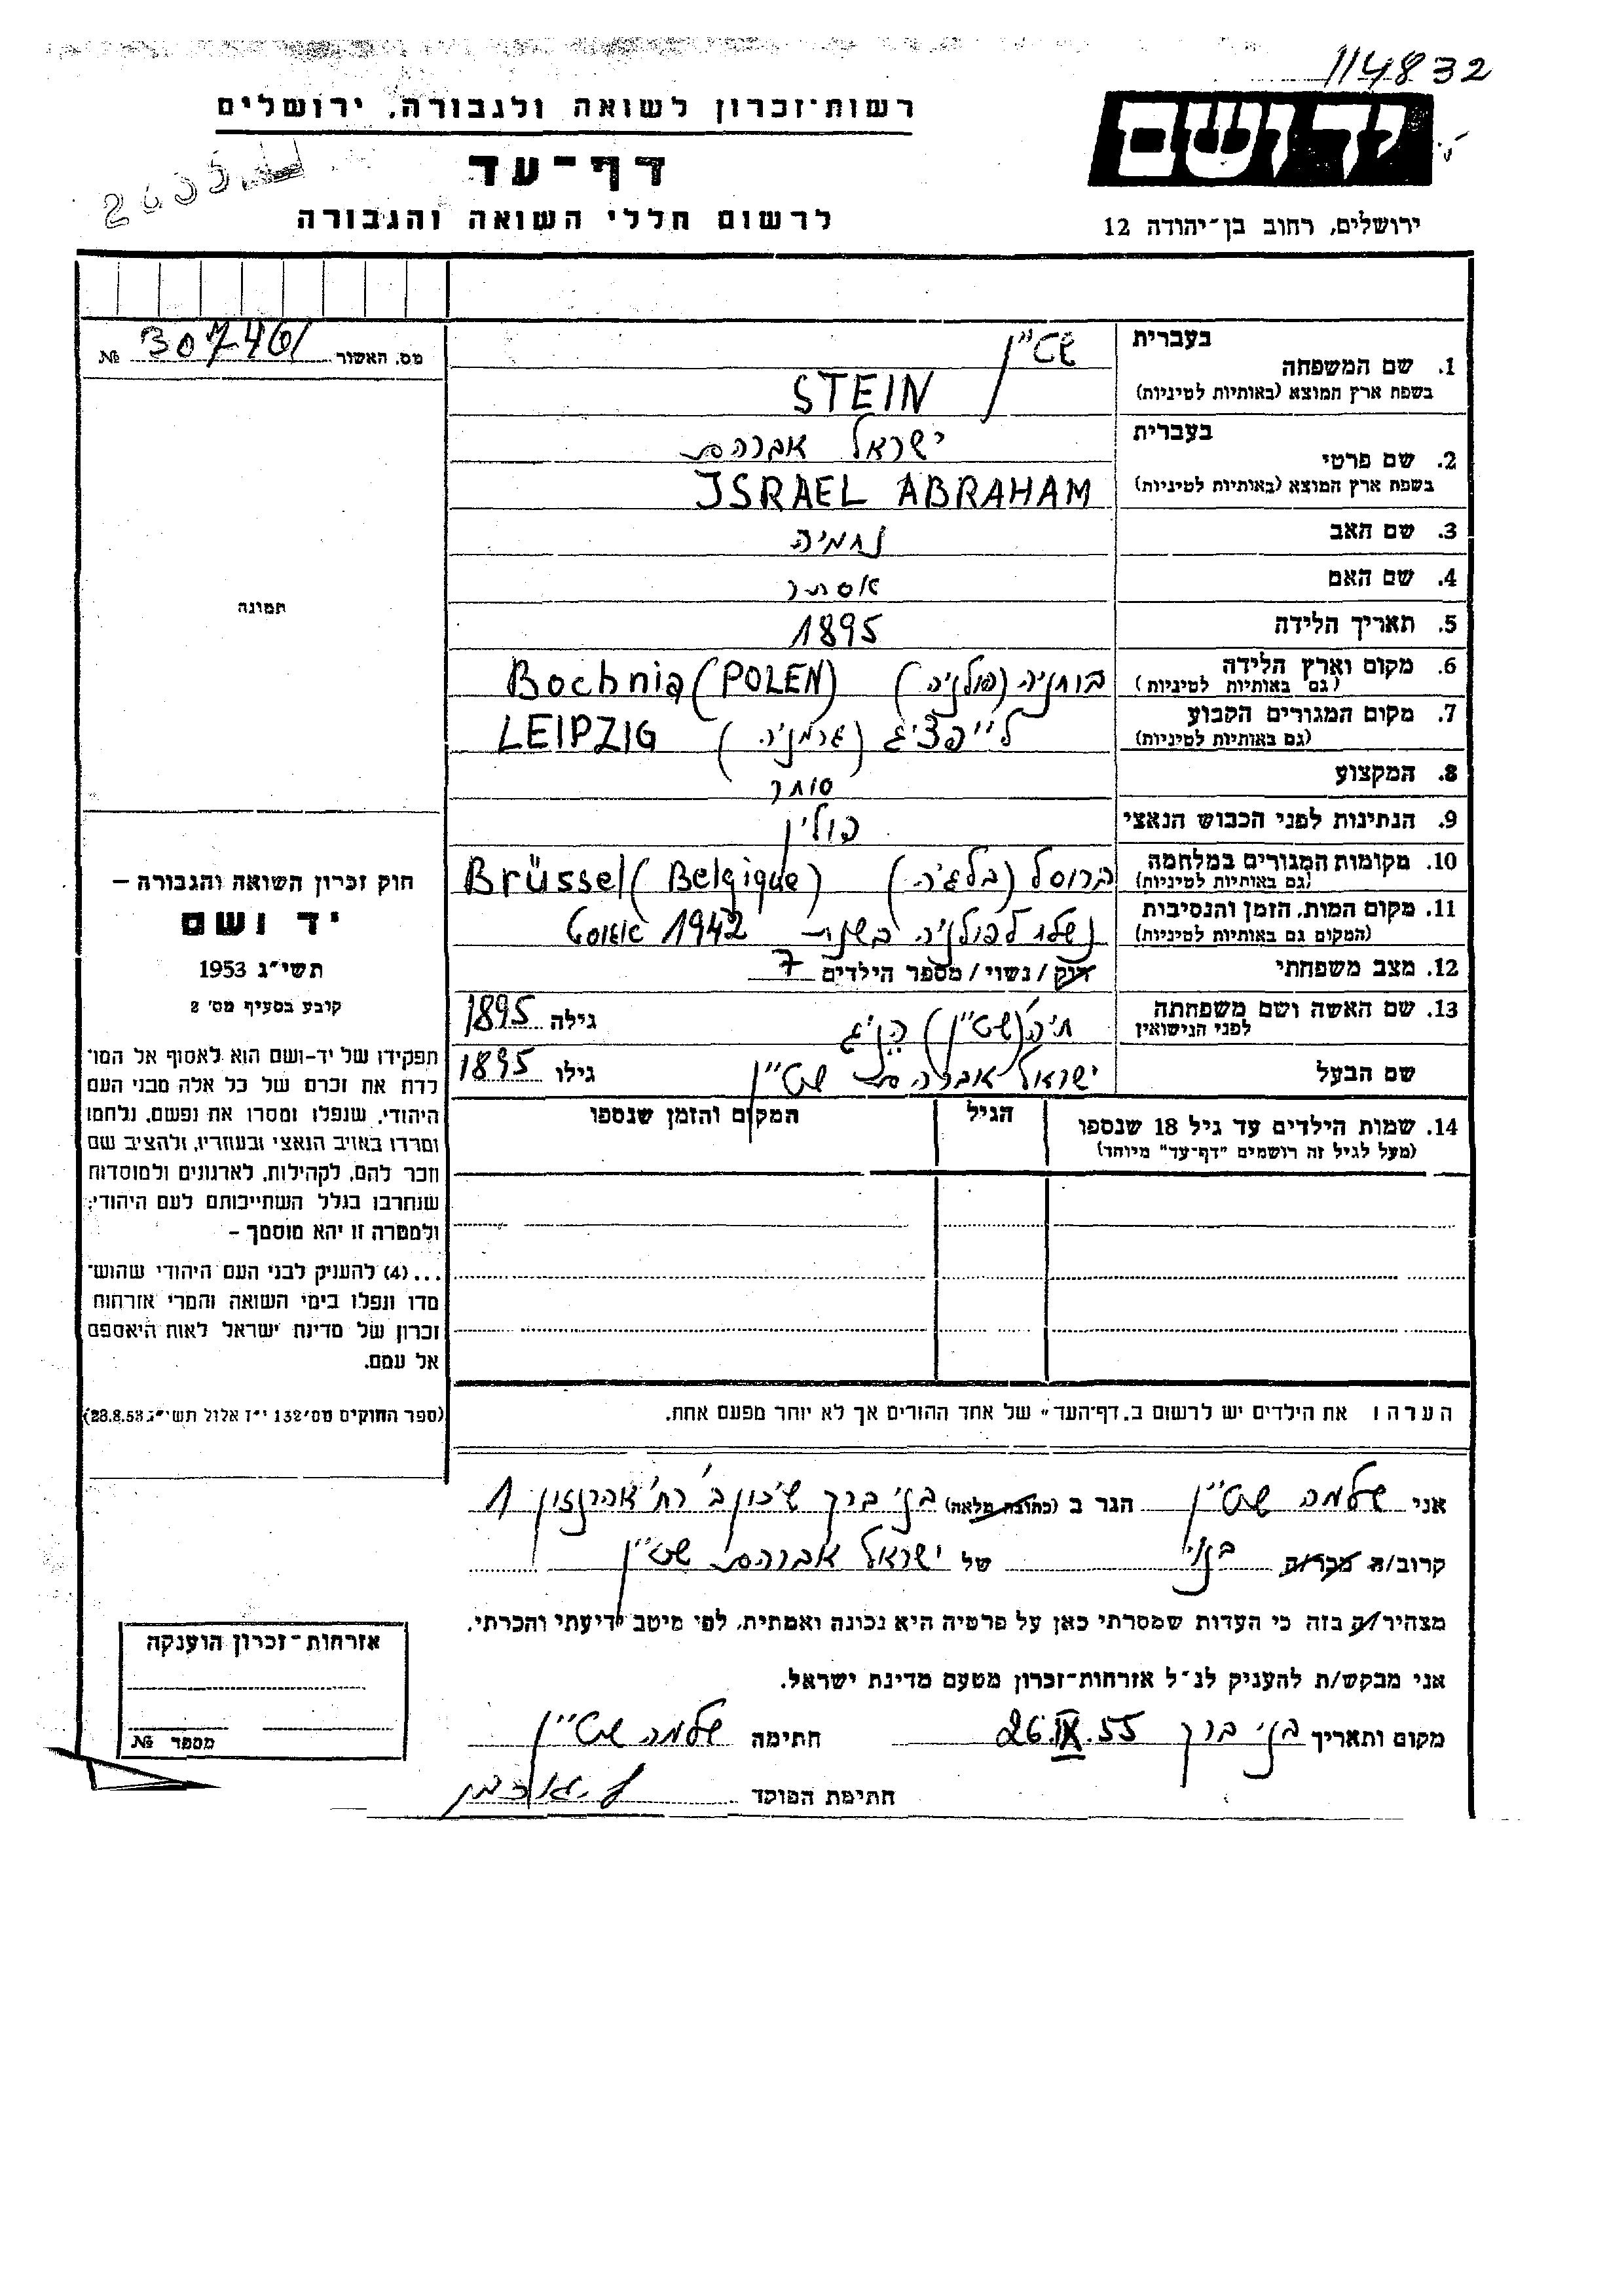 114832
רשות-זכרון לשואה ולגבורה, ירושלים
יד ושם
דף-עד
לרשום חללי השואה והגבורה
ירושלים, רחוב בן-יהודה 12
מס. האשור № 307461
בעברית שטיין
1. שם המשפחה
בשפת ארץ המוצא (באותיות לטיניות) STEIN
בעברית ישראל אברהם
2. שם פרטי
בשפת ארץ המוצא (באותיות לטיניות) JSRAEL ABRAHAM
3. שם האב נחמיה
4. שם האם אסתר
5. תאריך הלידה 1895
6. מקום וארץ הלידה בוחניה (פולניה) Bochnia (POLEN)
(גם באותיות לטיניות)
7. מקום המגורים הקבוע לייפציג (גרמניה) LEIPZIG
(גם באותיות לטיניות)
8. המקצוע סוחר
9. הנתינות לפני הכבוש הנאצי פולין
10. מקומות המגורים במלחמה ברוסל (בלגיה) Brüssel (Belgique)
(גם באותיות לטיניות)
11. מקום המות, הזמן והנסיבות נשלח לפולניה בשנת 1942 אוגוסט
(המקום גם באותיות לטיניות)
12. מצב משפחתי רווק / נשוי / מספר הילדים 7
13. שם האשה ושם משפחתה חיה (שטיין) גילה 1895
לפני הנישואין
שם הבעל ישראל אברהם שטיין גילו 1895
14. שמות הילדים עד גיל 18 שנספו הגיל המקום והזמן שנספו
(מעל לגיל זה רושמים "דף-עד" מיוחד)
הערה: את הילדים יש לרשום ב„דף-העד" של אחד ההורים אך לא יותר מפעם אחת.
תמונה
חוק זכרון השואה והגבורה –
יד ושם
תשי"ג 1953
קובע בסעיף מס' 2
תפקידו של יד-ושם הוא לאסוף אל המו־
לדת את זכרם של כל אלה מבני העם
היהודי, שנפלו ומסרו את נפשם, נלחמו
ומרדו באויב הנאצי ובעוזריו, ולהציב שם
וזכר להם, לקהילות, לארגונים ולמוסדות
שנחרבו בגלל השתייכותם לעם היהודי;
ולמטרה זו יהא מוסמך –
...(4) להעניק לבני העם היהודי שהוש־
מדו ונפלו בימי השואה והמרי אזרחות
זכרון של מדינת ישראל לאות היאספם
אל עמם.
(ספר החוקים מס' 132 י"ז אלול תשי"ג 28.8.53)
אני שלמה שטיין הגר ב (כתובת מלאה) בני ברק שיכון ב' רח' אהרונזון 1
קרוב/ה מכר/ה בני של ישראל אברהם שטיין
מצהיר/ה בזה כי העדות שמסרתי כאן על פרטיה היא נכונה ואמתית, לפי מיטב ידיעתי והכרתי.
אני מבקש/ת להעניק לנ"ל אזרחות-זכרון מטעם מדינת ישראל.
מקום ותאריך בני ברק 26.IX.55 חתימה שלמה שטיין
חתימת הפוקד
אזרחות-זכרון הוענקה
מספר №